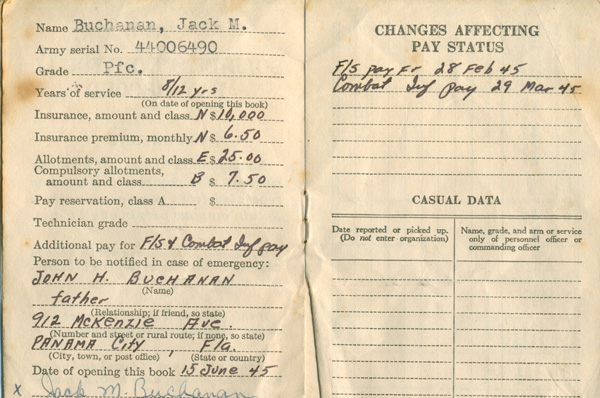 Name Buchanan, Jack M.
Army serial No. 44006490
Grade Pfc.
Years of service 8/12 yrs
(On date of opening this book)
Insurance, amount and class N $ 10,000
Insurance premium, monthly N $ 6.50
Allotments, amount and class E $ 25.00
Compulsory allotments,
amount and class B $ 7.50
Pay reservation, class A $
Technician grade
Additional pay for F/S & Combat Inf pay
Person to be notified in case of emergency:
JOHN H. BUCHANAN
(Name)
father
(Relationship; if friend, so state)
912 McKenzie Ave.
(Number and street or rural route; if none, so state)
PANAMA City, Fla.
(City, town, or post office) (State or country)
Date of opening this book 15 June 45
x Jack M. Buchanan
CHANGES AFFECTING
PAY STATUS
F/S pay fr 28 Feb 45
Combat Inf pay 29 Mar 45
CASUAL DATA
Date reported or picked up.
(Do not enter organization)
Name, grade, and arm or service
only of personnel officer or
commanding officer